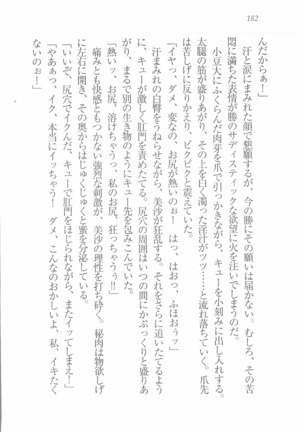 182
んだからぁ！」
汗と涙にまみれた顔で懇願するが、今の勝にその願いは届かない。むしろ、その苦
悶に満ちた表情が勝のサディスティックな欲望に火を注いでしまうのだ。
小豆大にふくらんだ肉芽を爪で引っかきながら、キューを小刻みに出し入れする。
太腿の筋が盛りあがり、その上を白く濁った淫汁がツツ……と流れ落ちていく。爪先
は苦しげに反りかえり、ピクピクと震えていた。
「イヤっ、ダメ、変なの、お尻が熱いのぉー　はっ、はおっ、ふほおぅっ」
汗まみれの白臀をうねらせながら、美沙が狂乱する。それをさらに追いたてるよう
に、キューが激しく肛門を責めたてる。尻穴の周囲はいつの間にかぷっくりと盛りあ
がり、まるで別の生き物のようにキュー先を包みこんでいた。
「熱いッ、お尻、溶けちゃうっ、私のお尻、狂っちゃうぅ‼」
痛みとも快感ともつかない強烈な刺激が、美沙の理性を打ち砕く。秘肉は物欲しげ
に左右に開き、その奥からはじゅくじゅくと蜜を分泌している。
「いいぞ、尻穴でイクんだ、キューで肛門をほじられながら、またイッてしまえ！」
「やあぁっ、イク、本当にイッちゃうー　ダメ、こんなのおかしいよ、私、イキたく
ないのぉ！」